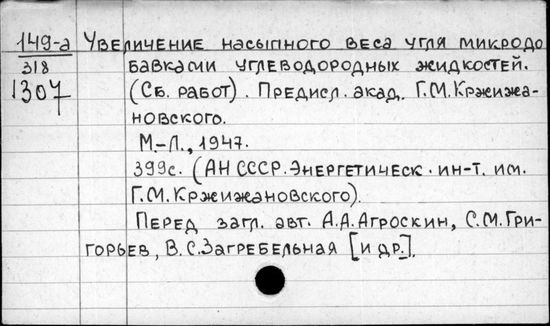 149-а Увеличение насыпного веса угля микродо
318 бавками углеводородных жидкостей.
1307 (Сб. работ). Предисл. акад. Г.М. Кржижа-
новского.
М.-Л., 1947.
399с. (АН СССР. Энергетическ. ин-т. им.
Г.М. Кржижановского).
Перед загл. авт. А.А. Агроскин, С.М. Гри-
горьев, В.С. Загребельная [и др.].